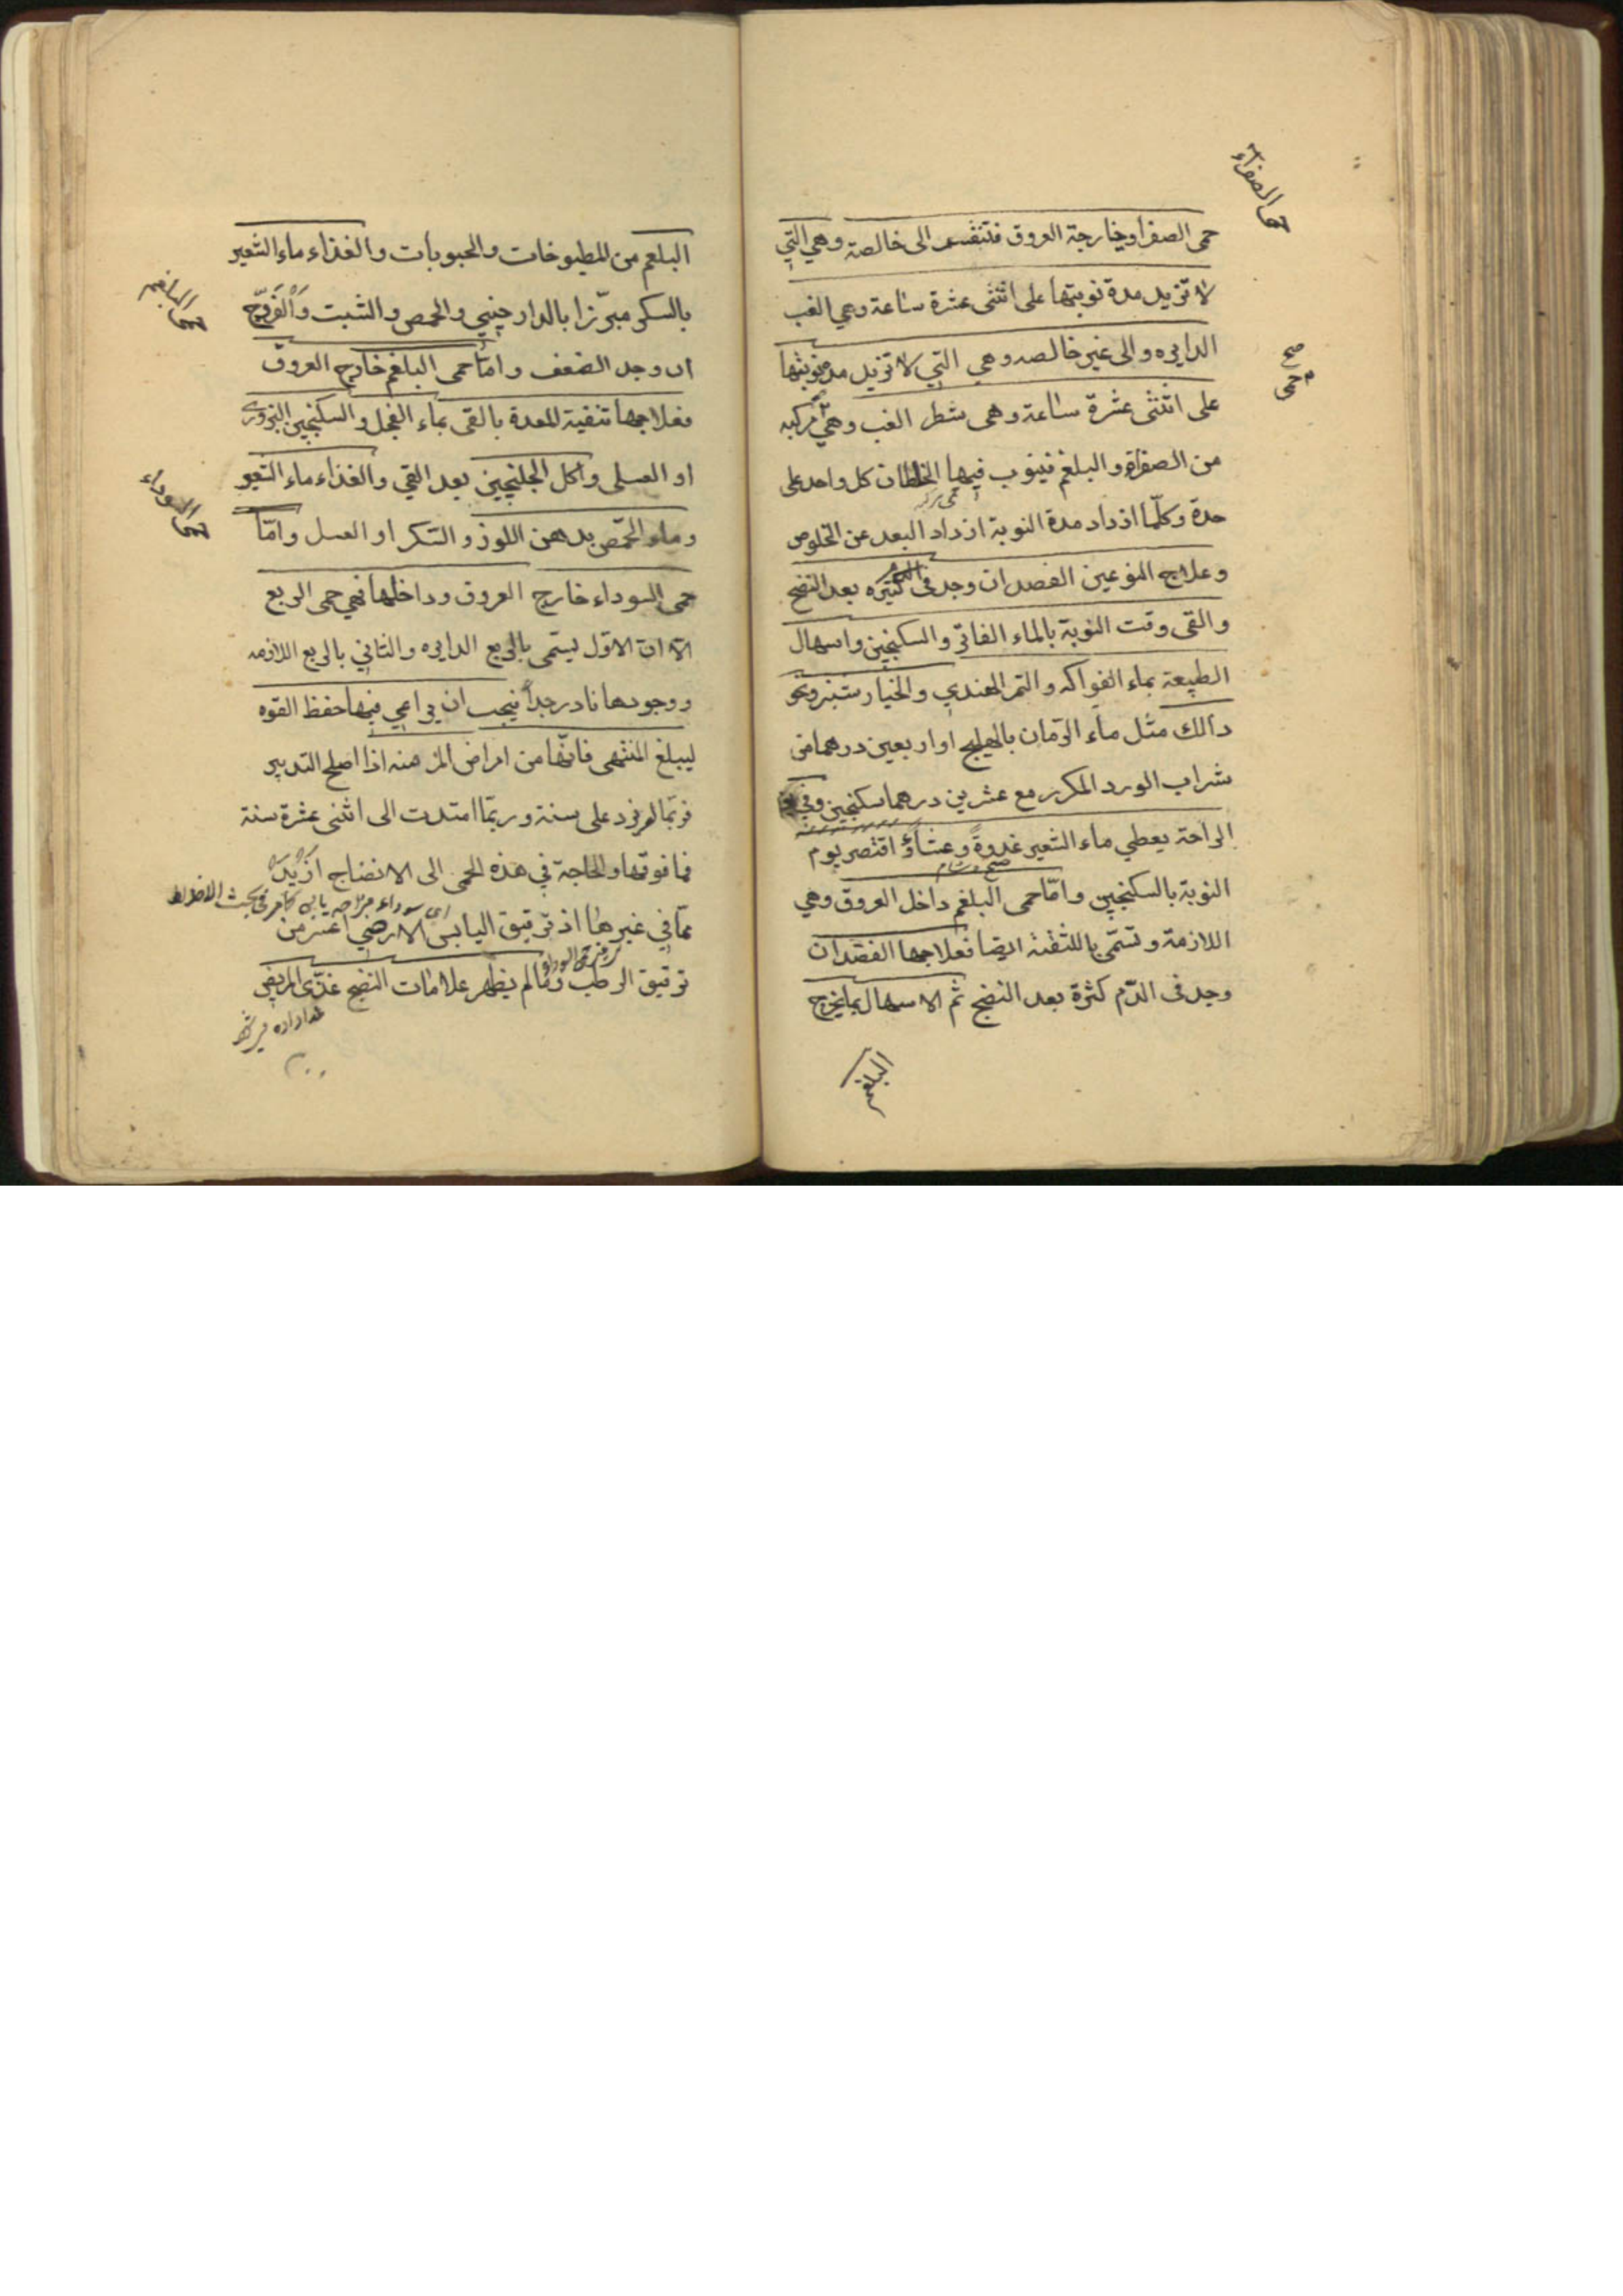 حمى الصفراء
حمى الصفراويخارجة العروق فتنقسم الى خالصة وهي التي
لا تزيد مدة نوبتها على اثنثى عشرة ساعة وهي الغب
الدايره والى غير خالصه وهي التي لا تزيد مدة نوبتها
صح
حمى
على اثنثى عشرة ساعة وهى شطر الغب وهي مركبه
من الصفراء والبلغم فينوب فيها الخلطان كل واحد على
حدة وكلّما ازداد مدة النوبة ازداد البعد عن الخلوص
وعلاج النوعين الفصد ان وجد فى الدم كثيره بعد النضج
والقى وقت النوبة بالماء الفاتر والسكنجبين واسهال
الطبيعة بماء الفواكه والتمر الهندي والخيار شنبر ونحو
ذالك مثل ماء الرّمان بالهليج او اربعين درهما من
شراب الورد المكرر مع عشرين درهما سكنجبين وفي يوم
الراحة يعطي ماء الشعير غدوةً وعشاءً واقتصر يوم
صبح وشام
النوبة بالسكنجبين وامّا حمى البلغم داخل العروق وهي
اللازمة وتسمّى باللثقة ايضا فعلاجها الفصد ان
وجد فى الدّم كثرة بعد النضج ثم الاسهال بما يخرج
البلغم
البلغم من المطبوخات والحبوبات والغذاء ماء الشعير
بالسكر مبرّزا بالدارچيني والحمص والشبت وَالْفَرّوج
حمى البلغم
ان وجد الضعف وامّا حمى البلغم خارج العروق
فعلاجها تنقية المعدة بالقى بماء الفجل والسكنجبين البزورى
او العسلى واكل الجلنجبين بعد القي والغذاء ماء الشعير
حمى السوداء
وماء الحمّص بدهن اللوز والسّكر او العسل وامّا
حمى السوداء خارج العروق وداخلها فهي حمى الربع
الا ان الاوّل يسمّى بالربع الدايره والثاني بالربع اللازمه
ووجودها نادر جداً فيجب ان يراعي فيها حفظ القوه
ليبلغ المنتهى فانّها من امراض المزمنه اذا اصلح التدبير
فربّما لم تزد على سنة وربّما امتدت الى اثنى عشرة سنة
فما فوقها والحاجة في هذه الحمى الى الانضاج ازْيَدُ
اي سوداء مزاجه يابس كما مر في بحث الاخلاط
ممّا في غيرها اذ ترقيق اليابس الارضي اعسر من
ترقيق الرطب وما لم يظهر علامات النضج غذّى المريض
غذا داده مى شود